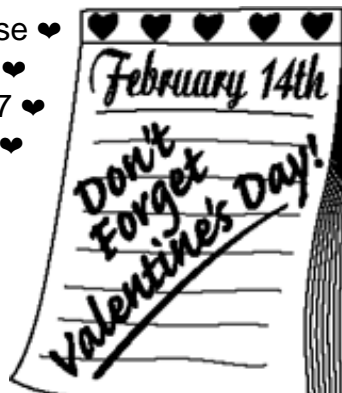 se ❤
❤
7 ❤
❤
February 14th
Don't
Forget
Valentine's Day!